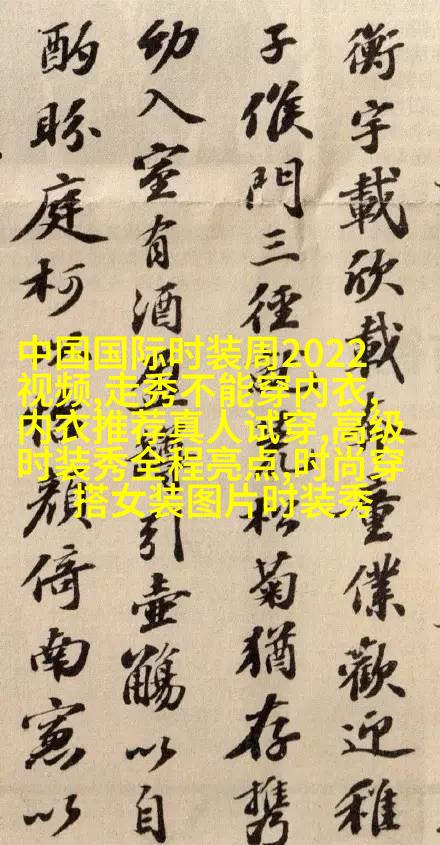 衡宇載欣載童僕歡迎稚
子候門三徑松菊猶存攜
幼入室有酒引壺觴以自
酌眄庭柯顏倚南窗以
中国国际时装周2022
视频,走秀不能穿内衣,
内衣推荐真人试穿,高级
时装秀全程亮点,时尚穿
搭女装图片时装秀